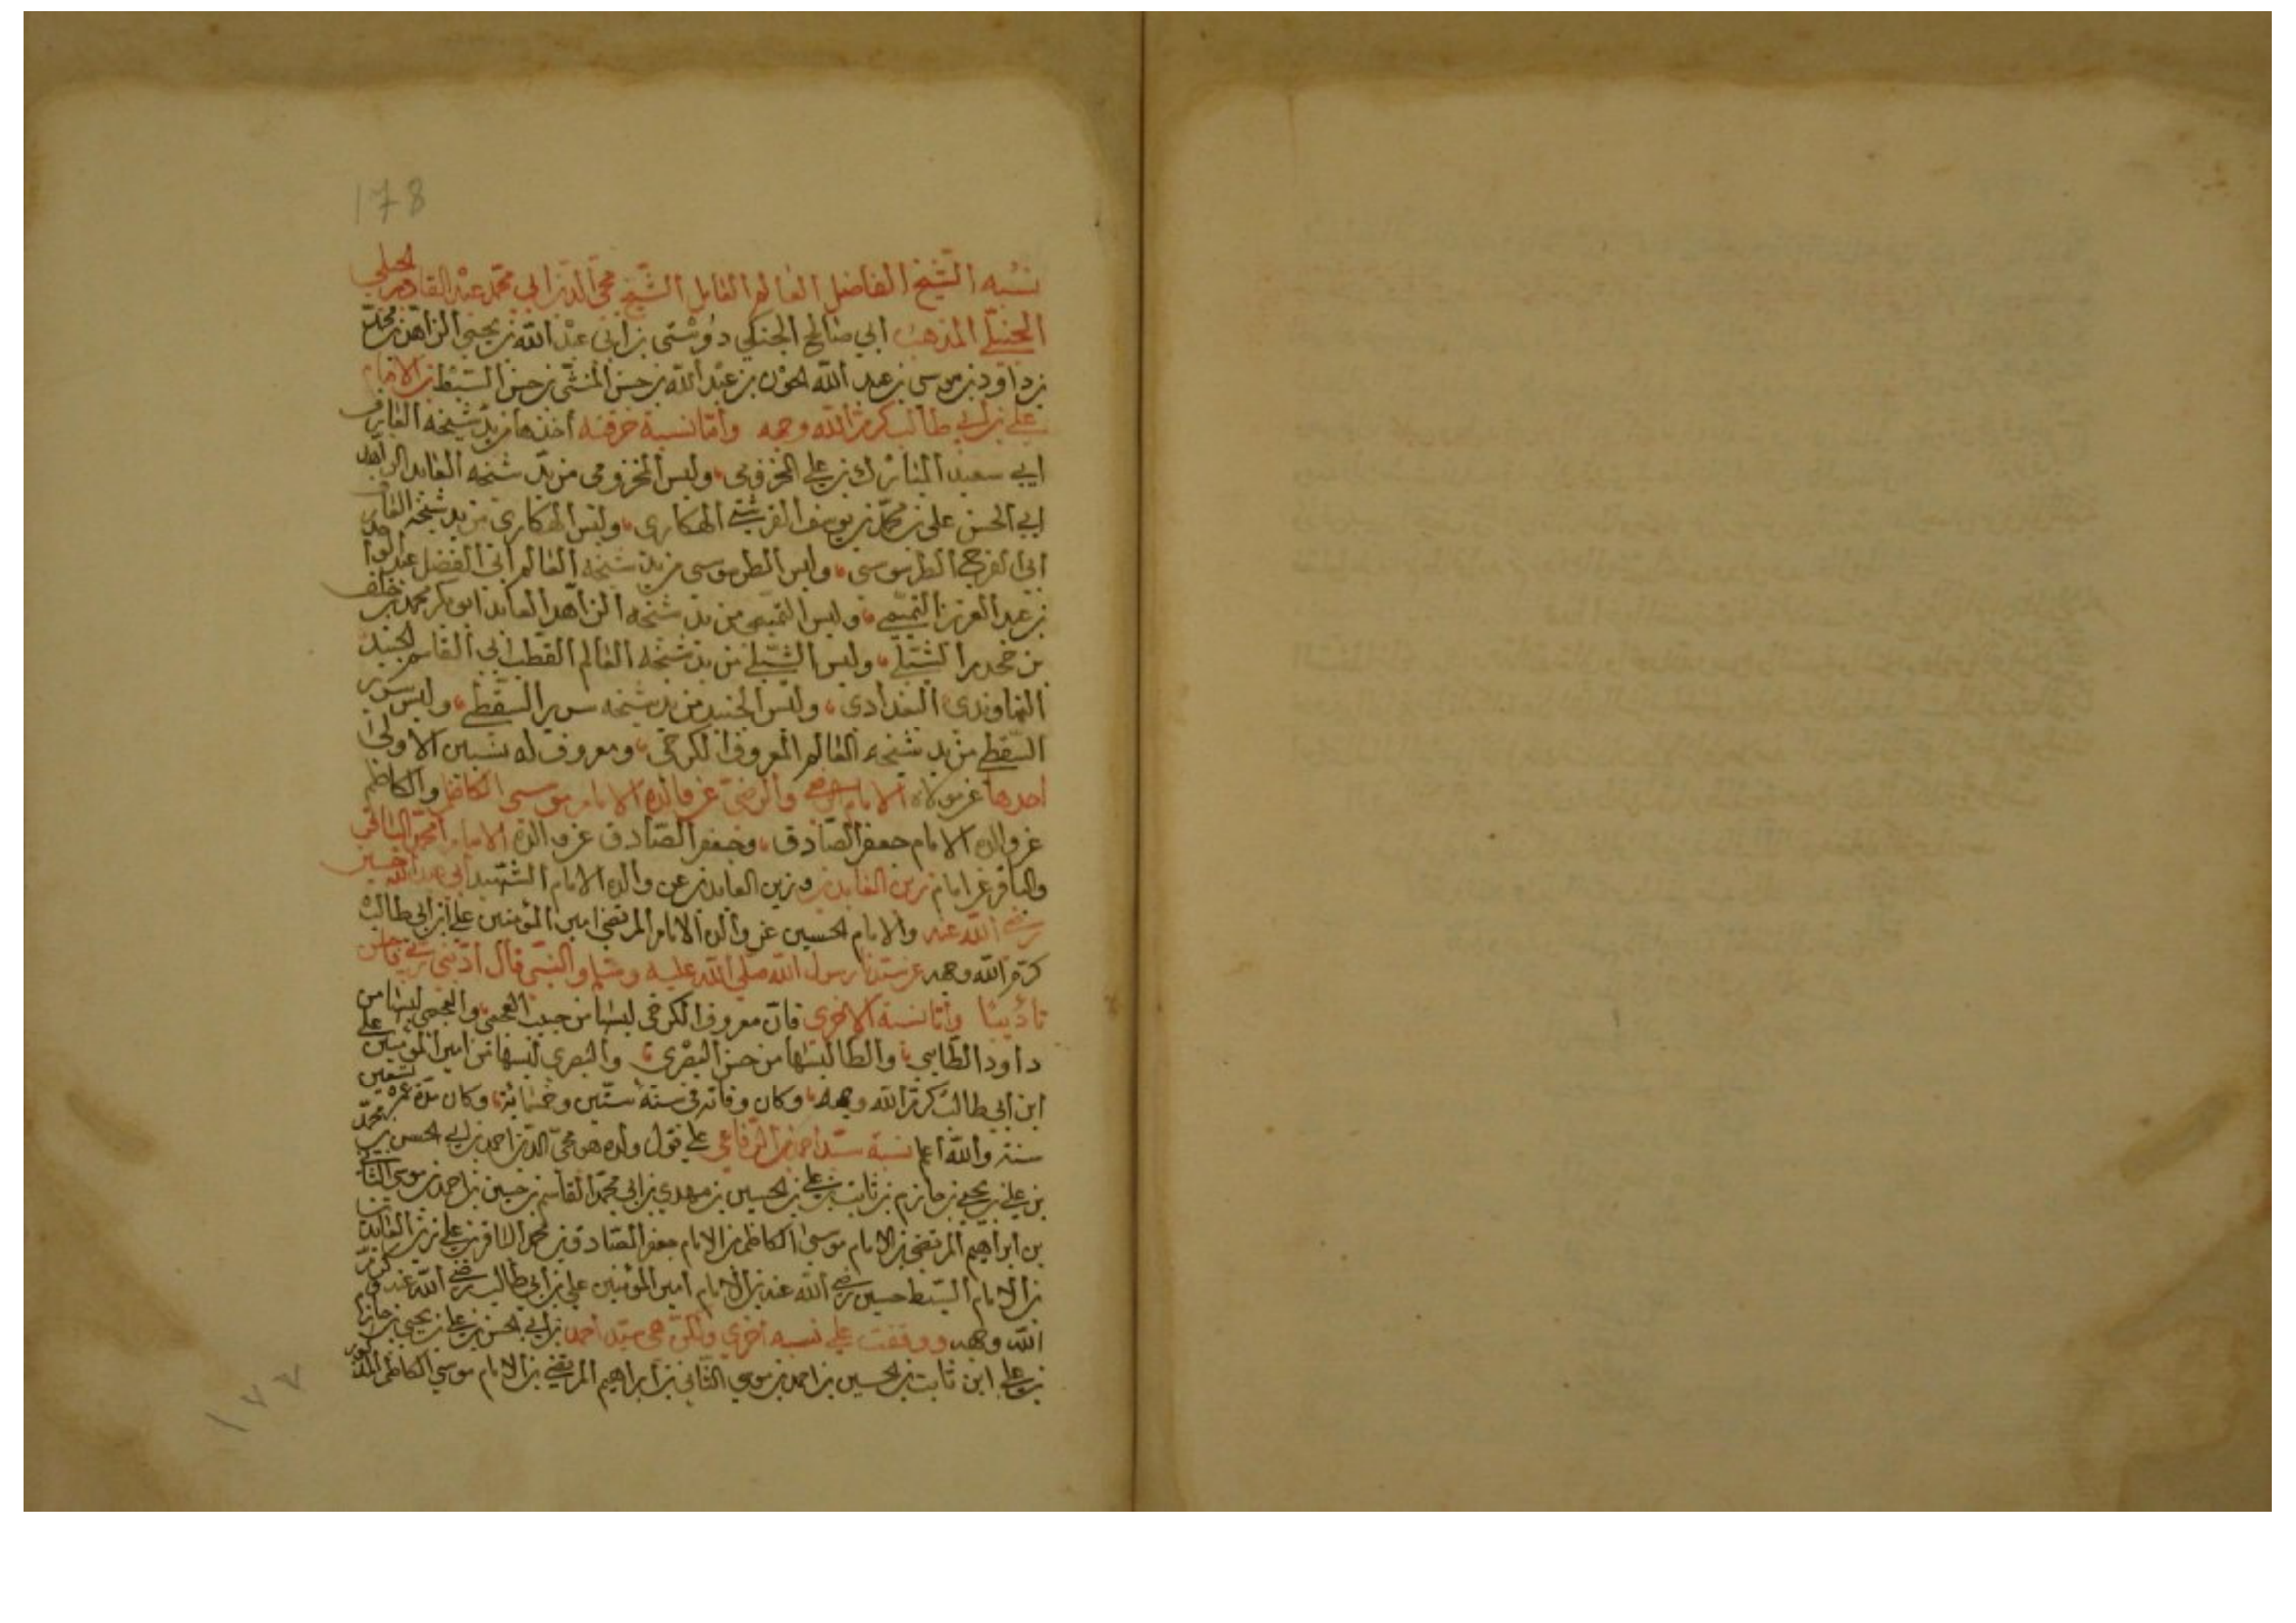 178
نسبه الشيخ الفاضل العالم العامل الشيخ محي الدين ابي محمد عبد القادر الجيلي
الحنبلي المذهب ابي صالح الجنكي دوستى بن ابي عبد الله بن يحيى الزاهد بن محمد
بن داود بن موسى بن عبد الله الجون بن عبد الله بن حسن المثنى بن حسن السبط بن الامام
علي بن ابي طالب كرم الله وجهه وأما نسبة خرقته أخذها من يد شيخه العارف
ابي سعيد المبارك بن علي المخزومى ولبس المخزومى من يد شيخه العابد الزاهد
ابي الحسن علي بن محمد بن يوسف القرشي الهكارى ولبس الهكارى من يد شيخه
ابي الفرج الطرسوسى ولبس الطرسوسى من يد شيخه العالم ابي الفضل عبد الواحد
بن عبد العزيز التميمي ولبس التميمى من يد شيخه الزاهد العابد ابو بكر محمد بن خلف
بن جحدر الشبلي ولبس الشبلي من يد شيخه العالم القطب ابي القاسم الجنيد
النهاوندى البغدادى ولبس الجنيد من يد شيخه سرير السقطي ولبس سرير
السقطي من يد شيخه العالم المعروف الكرخى ومعروف له نسبين الاولى
احدها عن مولاه الامام الرضي والرضى عن والده الامام موسى الكاظم والكاظم
عن والده الامام جعفر الصادق وجعفر الصادق عن والده الامام محمد الباقر
والباقر عن امام زين العابدين وزين العابدين عن والده الامام الشهيد ابي عبد الله حسين
رضي الله عنه والامام الحسين عن والده الامام المرتضى امير المؤمنين علي ابن ابي طالب
كرم الله وجهه عن سيدنا رسول الله صلى الله عليه وسلم والنبي قال أدبني ربي فأحسن
تأديبا وأما نسبة الاخرى فان معروف الكرخى لبسها من حبيب العجمي والعجمى لبسها من
داود الطايي والطا لبسها من حسن البصرى والبصري لبسها من امير المؤمنين علي
ابن ابي طالب كرم الله وجهه وكان وفاته فى سنة ستين وخمسمائة وكان مدة عمره تسعين
سنة والله أعلم نسبة سيد احمد بن الرفاعى علي قول ولده هو محى الدين احمد بن ابي الحسن بن محمد
بن علي بن يحيى بن حازم بن ثابت بن علي بن الحسين بن مهدي بن ابي محمد القاسم بن حسين بن احمد بن موسى الثاني
بن ابراهيم المرتضى بن الامام موسى الكاظم بن الامام جعفر الصادق بن محمد الباقر بن علي بن زين العابدين
بن الامام السبط حسين رضي الله عنه بن الامام امير المؤمنين علي بن ابي طالب رضي الله عنه وكرم
الله وجهه ووقفت علي نسبه أخرى ولكن هى سيد أحمد بن ابي الحسن بن علي بن يحيى بن حازم
بن علي ابن ثابت بن الحسين بن احمد بن موسي الثاني بن ابراهيم المرتضي بن الامام موسي الكاظم المذكور
١٧٧